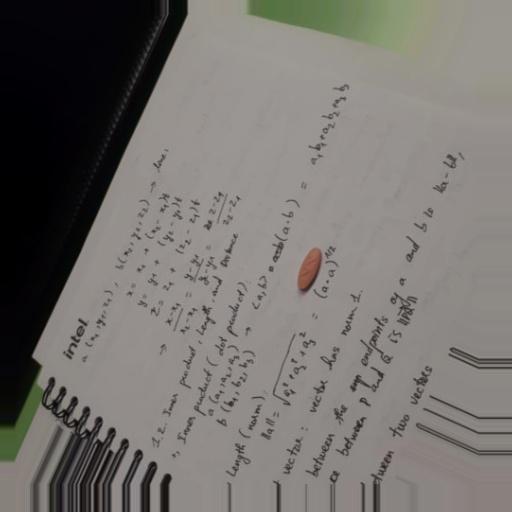 intel
a (x1, y1, z1), b(x2, y2, z2) → line:
x = x1 + (x2 - x1)t
y = y1 + (y2 - y1)t
z = z1 + (z2 - z1)t
→ x-x1/x2-x1 = y-y1/y2-y1 = z-z1/z2-z1
1.2. Inner product, length, and distance
Inner product (dot product):
a (a1, a2, a3) → <a, b> = (a·b) = a1b1+a2b2+a3b3
b (b1, b2, b3)
Length (norm)
||a|| = √a1²+a2²+a3² = (a·a)^1/2
vector: vector has norm 1.
between the endpoints of a and b is ||a-b||,
between P and Q is
two vectors